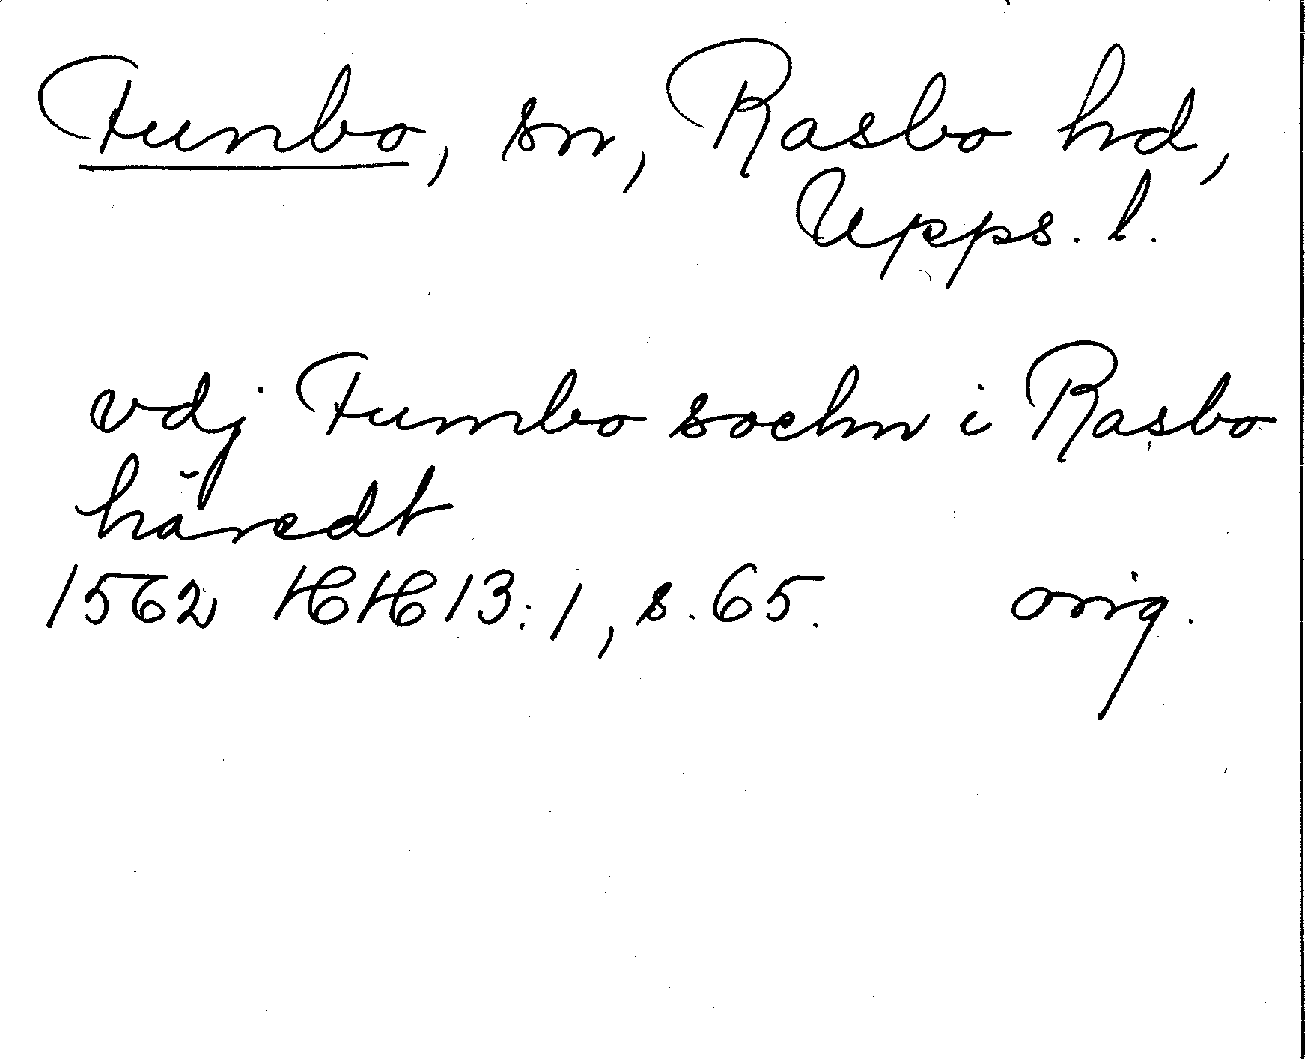 Funbo, sn, Rasbo hd,
Upps. l.
vdj Fumbo sochn i Rasbo
häredt
1562 HH 13:1, s. 65. orig.